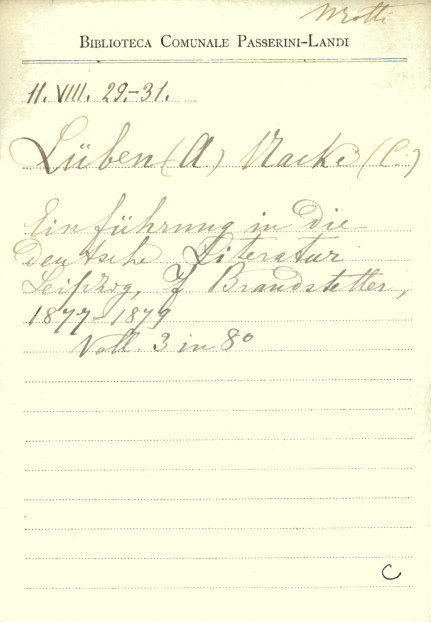 BIBLIOTECA COMUNALE PASSERINI-LANDI
11. VIII. 29.-31.
Lüben (A.) Nacke (C.)
Einführung in die
deutsche Literatur
Leipzig, F. Brandstetter,
1877-1879
Voll. 3 in 8°
C